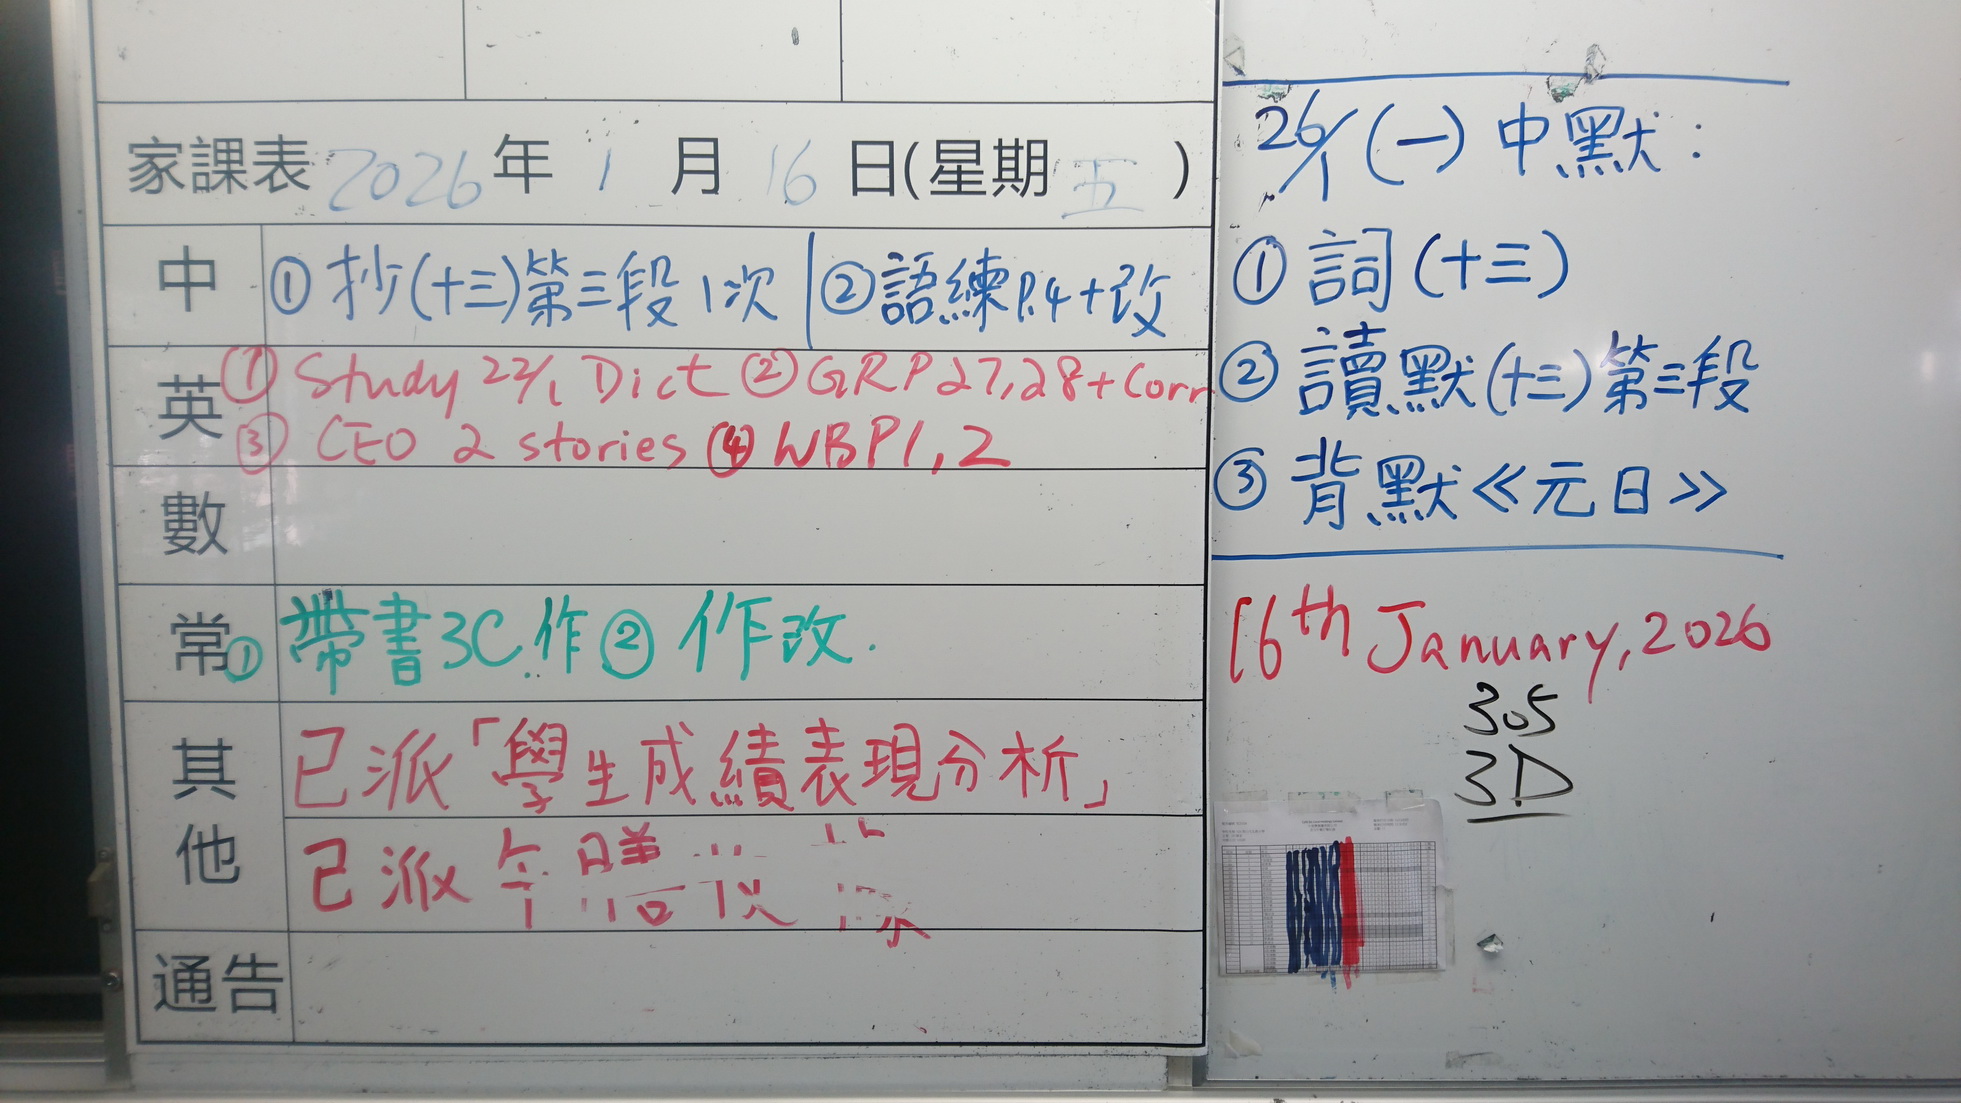 家課表 2026 年 1 月 16 日(星期 五 )
中 ① 抄(十三)第三段1次 | ② 語練P.4+改
英 ① Study 22/1 Dict ② GRP27,28+Corr
③ CEO 2 stories ④ WBP1,2
數
常 ① 帶書3C.作 ② 作改.
其他 已派「學生成績表現分析」
已派
通告
26/1 (一) 中默:
① 詞(十三)
② 讀默(十三)第三段
③ 背默《元日》
16th January, 2026
305
3D